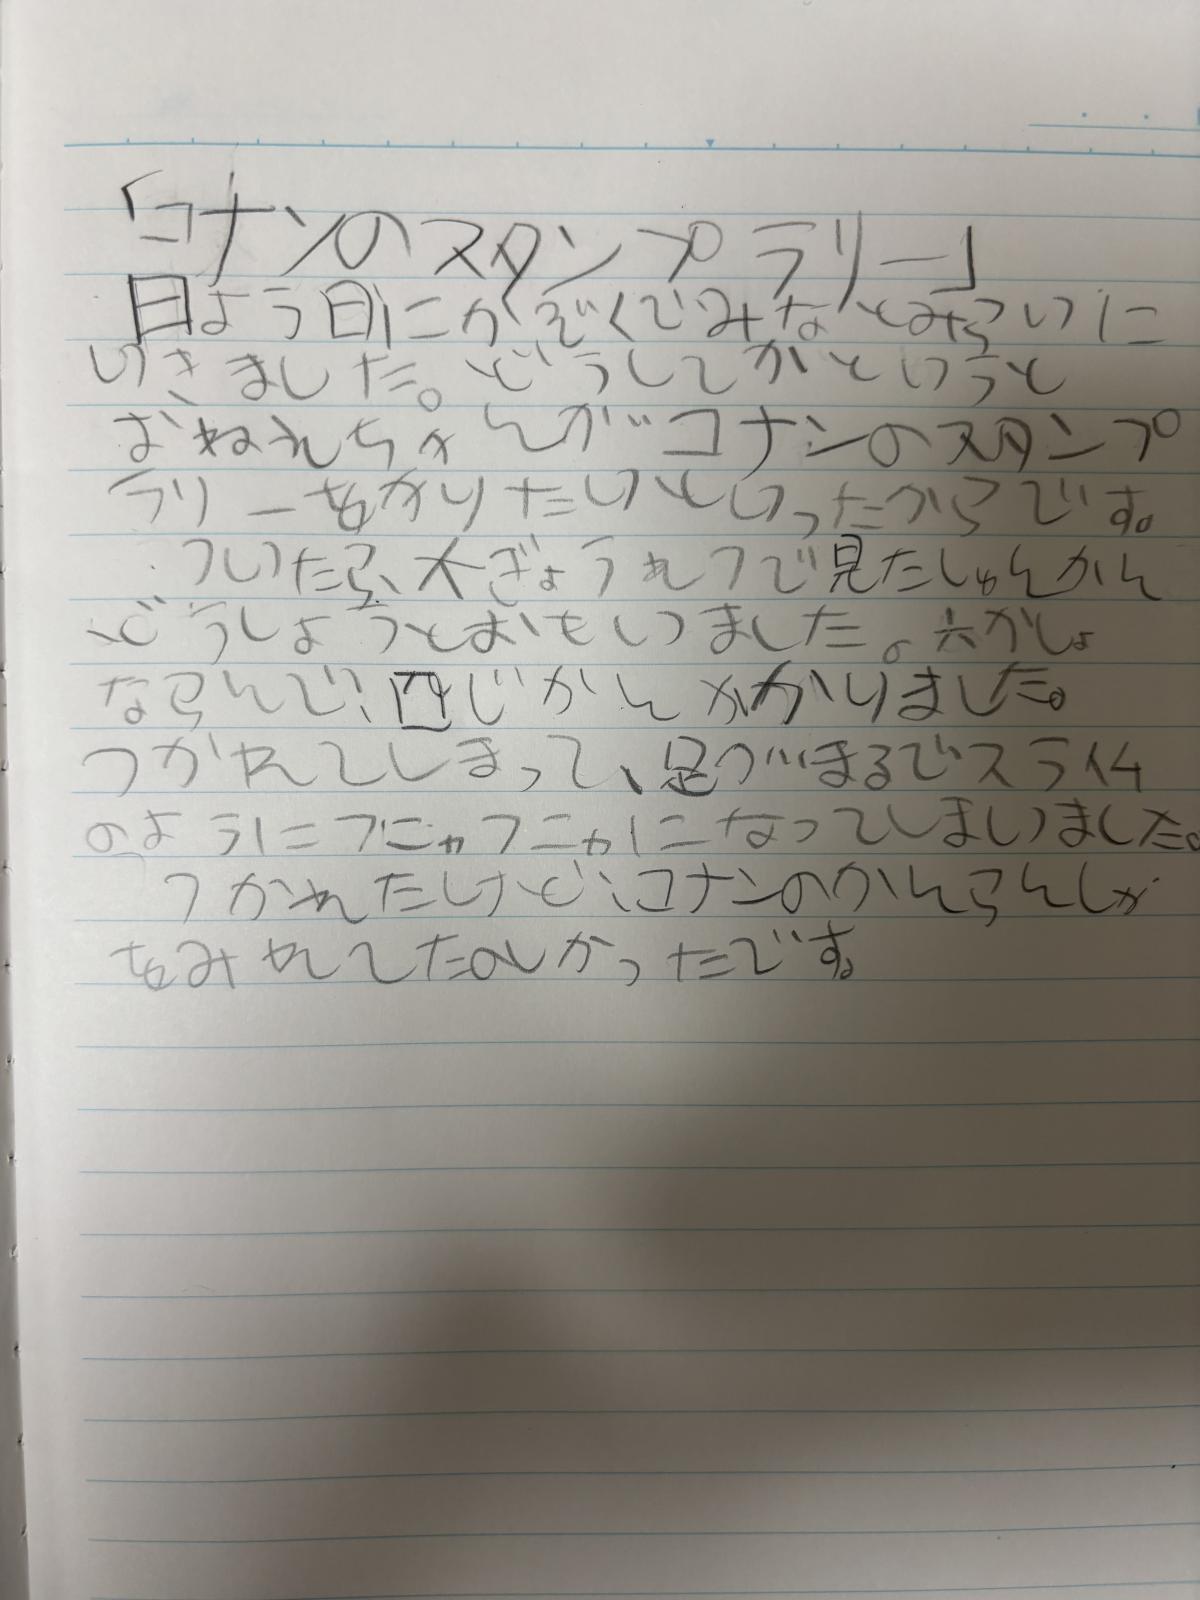 「コナンのスタンプラリー」
日よう日にかぞくでみなとみらいに
いきました。どうしてかというと
おねえちゃんがコナンのスタンプ
ラリーをやりたいといったからです。
ついたら、大ぎょうれつで見たしゅんかん
どうしようとおもいました。六かしょ
ならんで、四じかんかかりました。
つかれてしまって、足がまるでスライム
のようにフニャフニャになってしまいました。
つかれたけど、コナンのかんらんしゃ
をみれてたのしかったです。